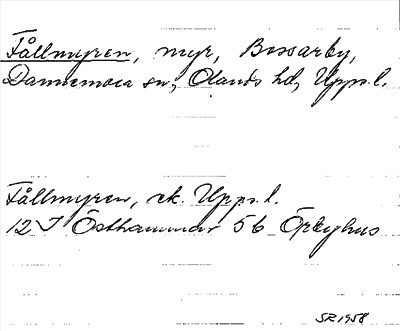 Fållmyren, myr, Bossarby,
Dannemora sn, Olands hd, Upps.l.
Fållmyren, ek. Upps.l.
12 I Östhammar 5b Örbyhus
SR 1958